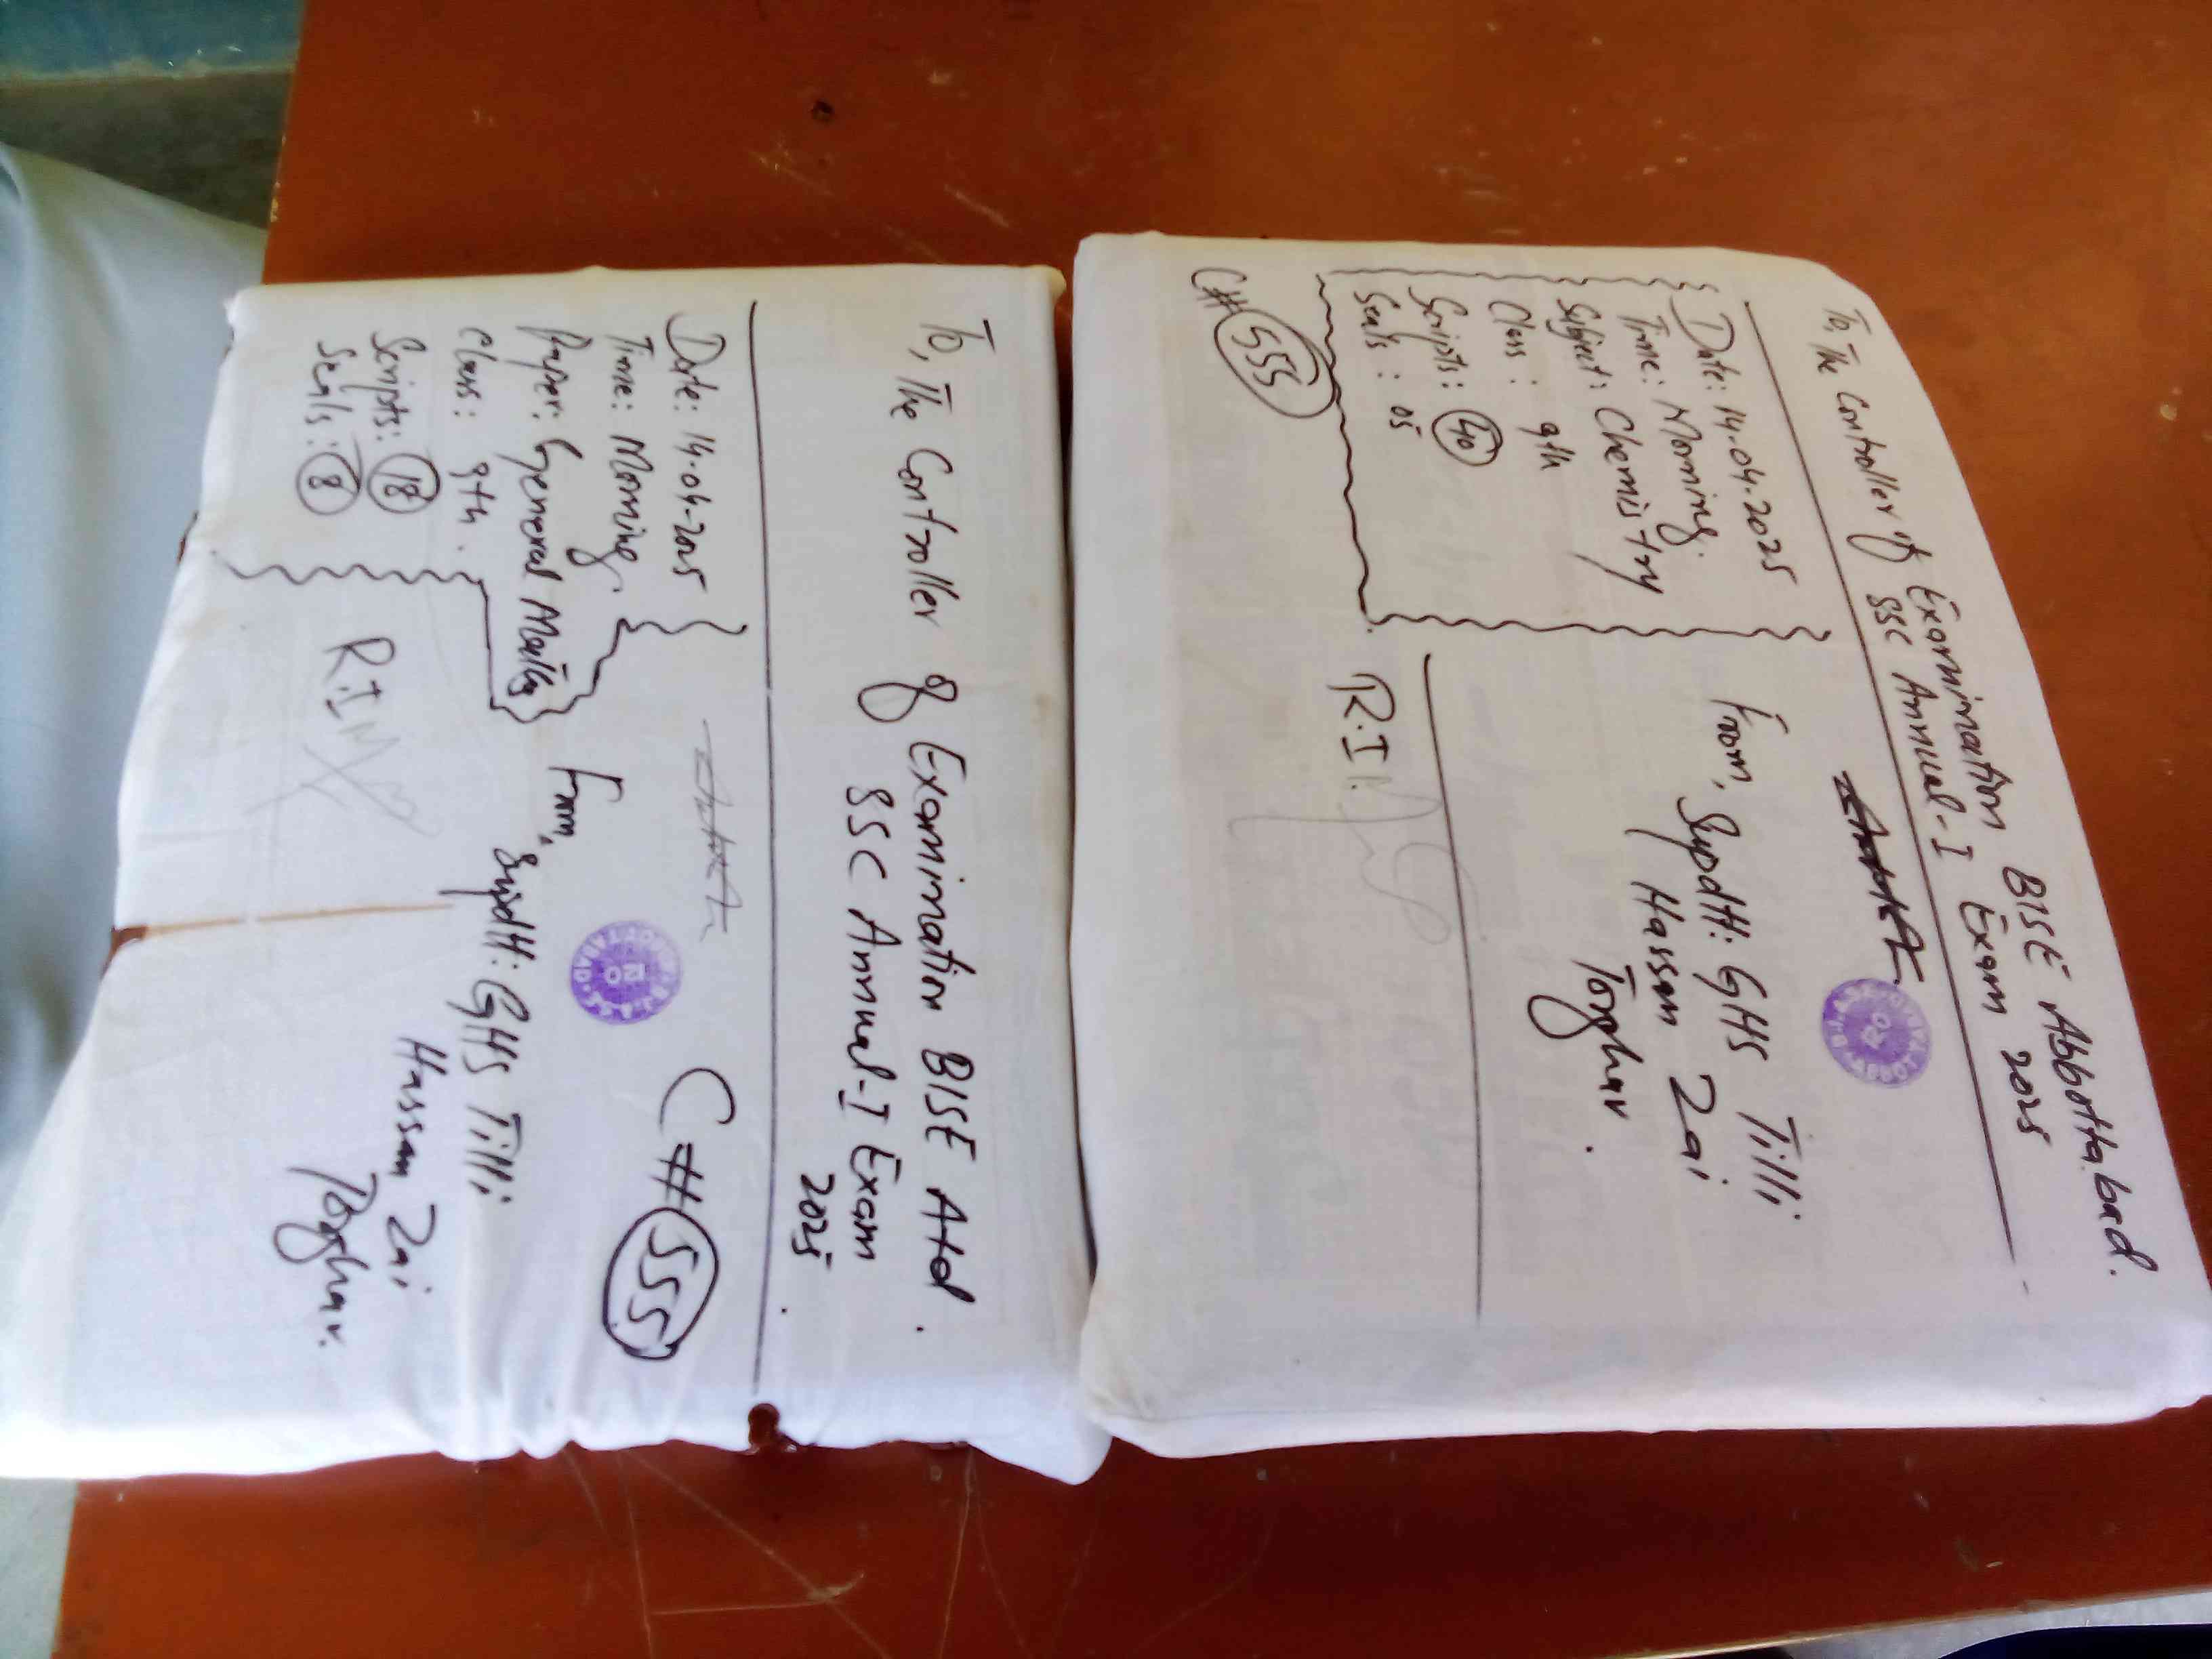 To, The Controller of Examination BISE Abbottabad.
SSC Annual-I Exam 2025
Date: 14-04-2025
Time: Morning.
Subject: Chemistry
Class: 9th
Scripts: 40
Seals: 05
C# 555
From, Supdtt: GHS Tilli
Hassan Zai
Torghar.
R.I
To, The Controller of Examination BISE Atd.
SSC Annual-I Exam
2025.
Date: 14-04-2025
Time: Morning.
Paper: General Maths
Class: 9th.
Scripts: 18
Seals: 8
C# 555
From,
Supdtt: GHS Tilli
Hassan Zai
Torghar.
R.I